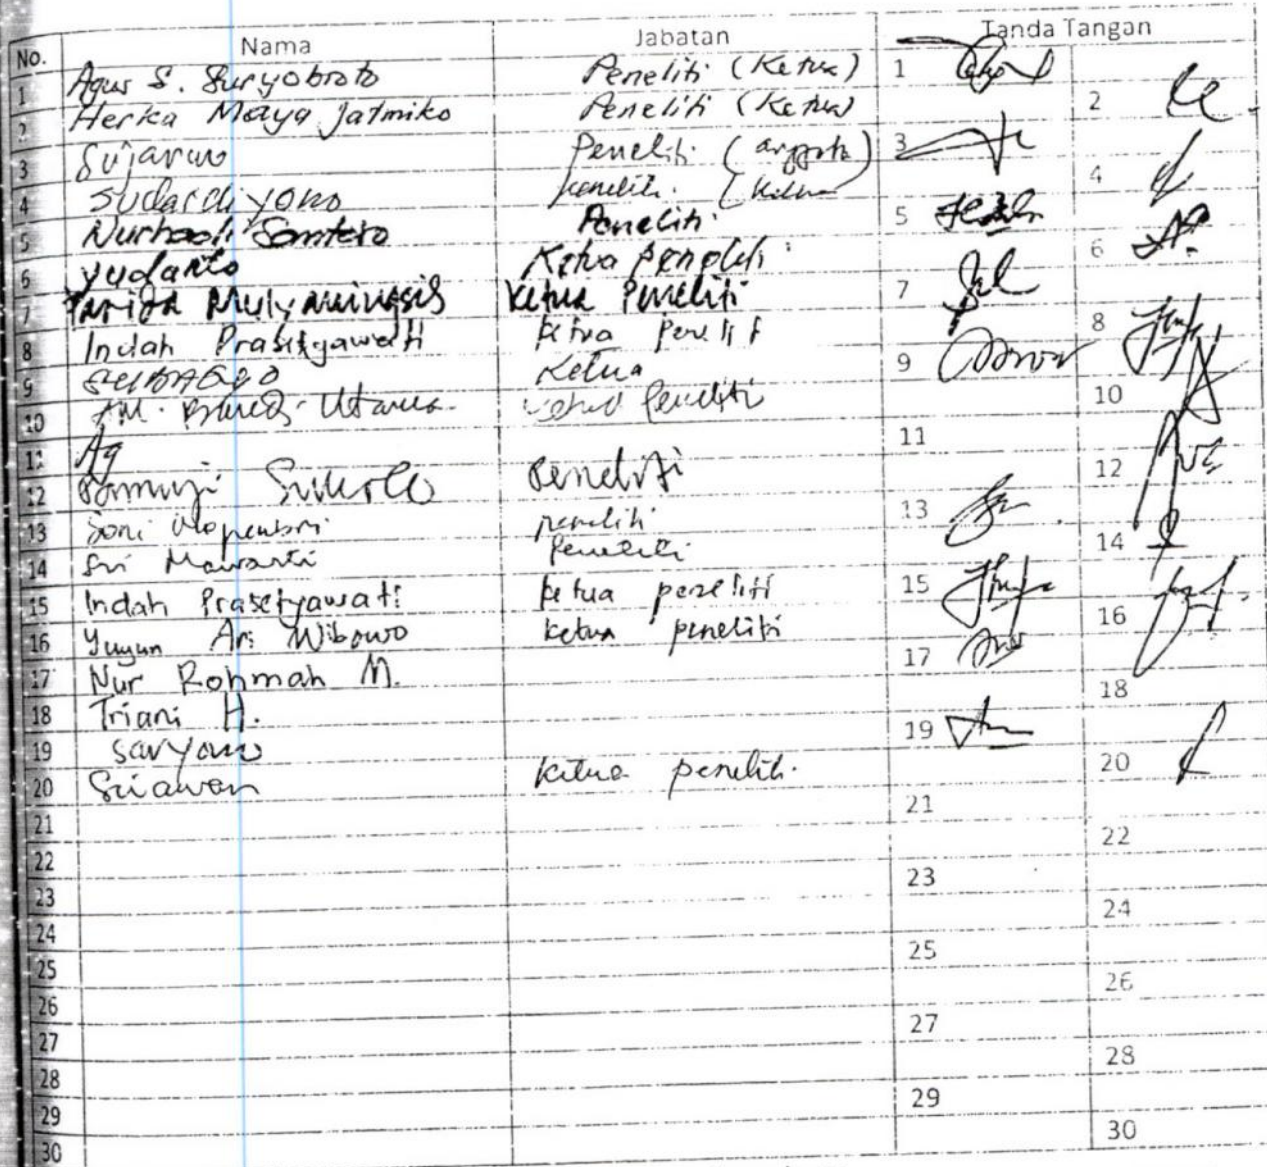 No. Nama Jabatan Tanda Tangan
1 Agus S. Suryobroto Peneliti (Ketua) 1
2 Herka Maya Jatmiko Peneliti (Ketua) 2
3 Sujarwo Peneliti (anggota) 3
4 Sudardiyono peneliti (Ketua 4
5 Nurhadi Santoso Peneliti 5
6 Yudanto Ketua peneliti 6
7 Farida Mulyaningsih Ketua Peneliti 7
8 Indah Prasetyawati ketua peneliti 8
9 Ketua 9
10 Utama Ketua Peneliti 10
11 Ag 11
12 Pamuji Sukoco Peneliti 12
13 Soni Nopembri peneliti 13
14 Sri Mawarti Peneliti 14
15 Indah Prasetyawati ketua peneliti 15
16 Yuyun Ari Wibowo ketua peneliti 16
17 Nur Rohmah M. 17
18 Triani H. 18
19 Saryono 19
20 Sriawan Ketua peneliti. 20
21 21
22 22
23 23
24 24
25 25
26 26
27 27
28 28
29 29
30 30